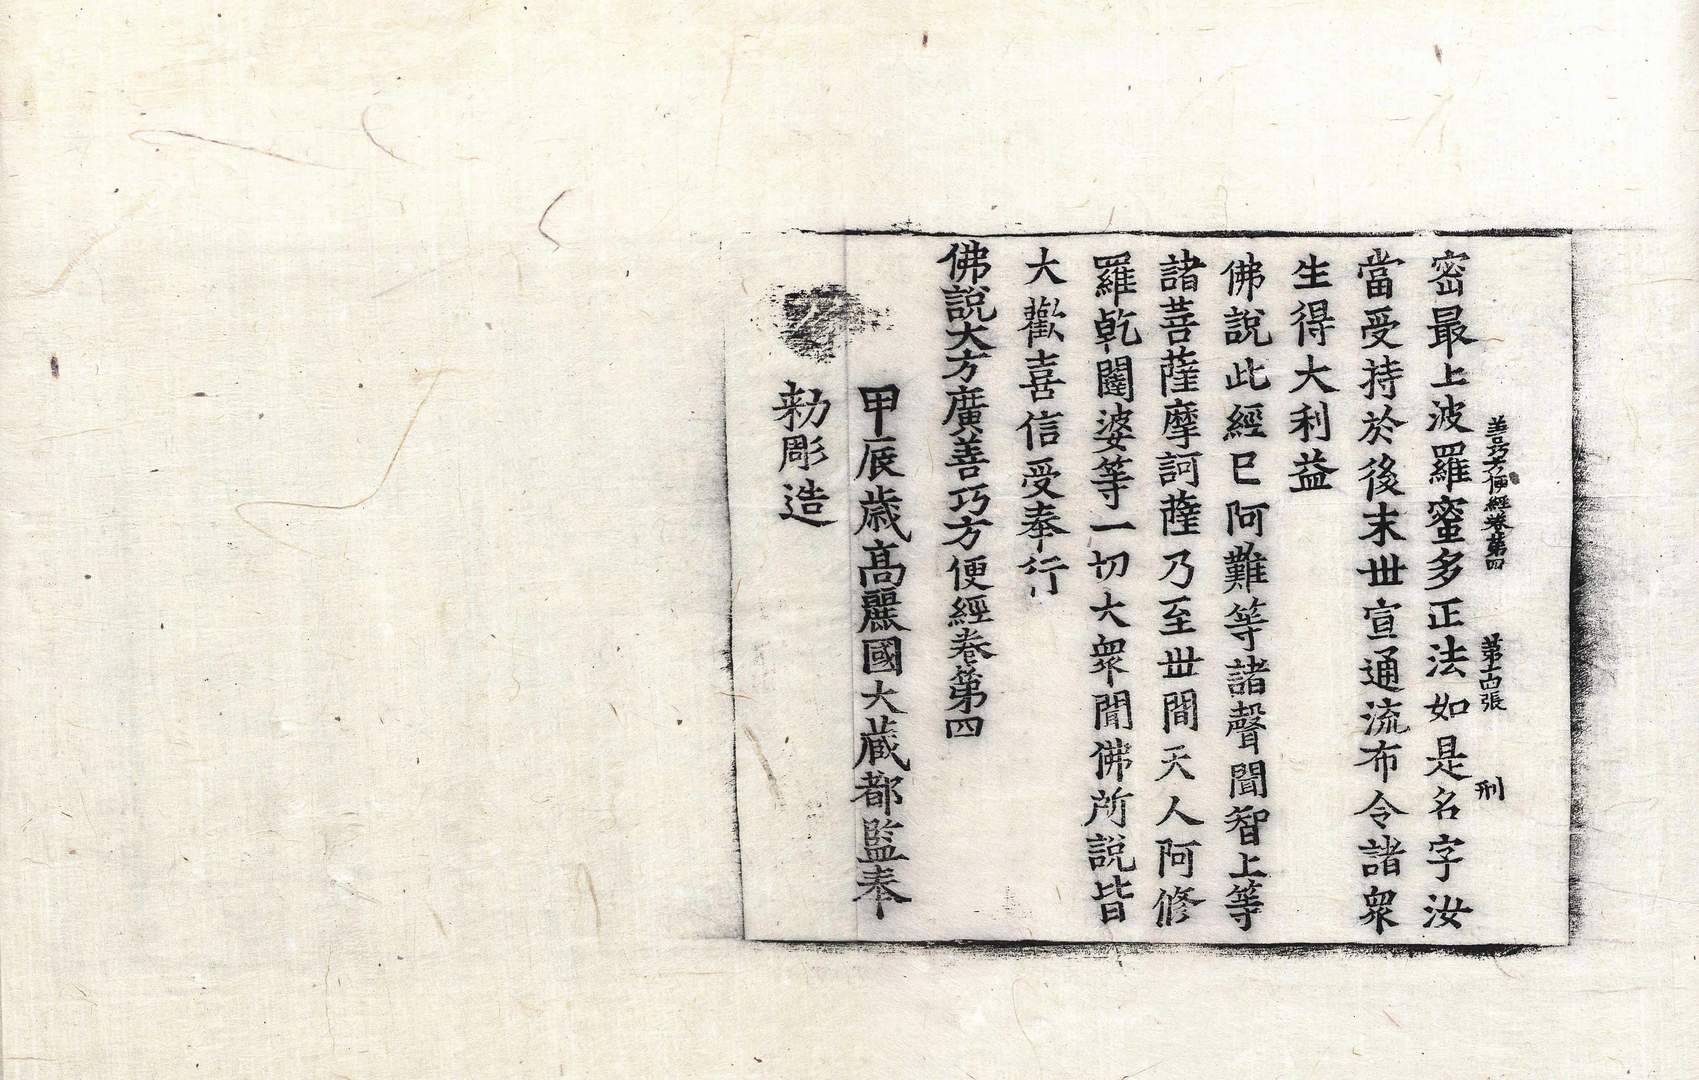 善巧方便經卷第四 第十四張 刑
密最上波羅蜜多正法如是名字汝
當受持於後末世宣通流布令諸衆
生得大利益
佛說此經已阿難等諸聲聞智上等
諸菩薩摩訶薩乃至世間天人阿修
羅乾闥婆等一切大衆聞佛所說皆
大歡喜信受奉行
佛說大方廣善巧方便經卷第四
甲辰歲高麗國大藏都監奉
勅彫造